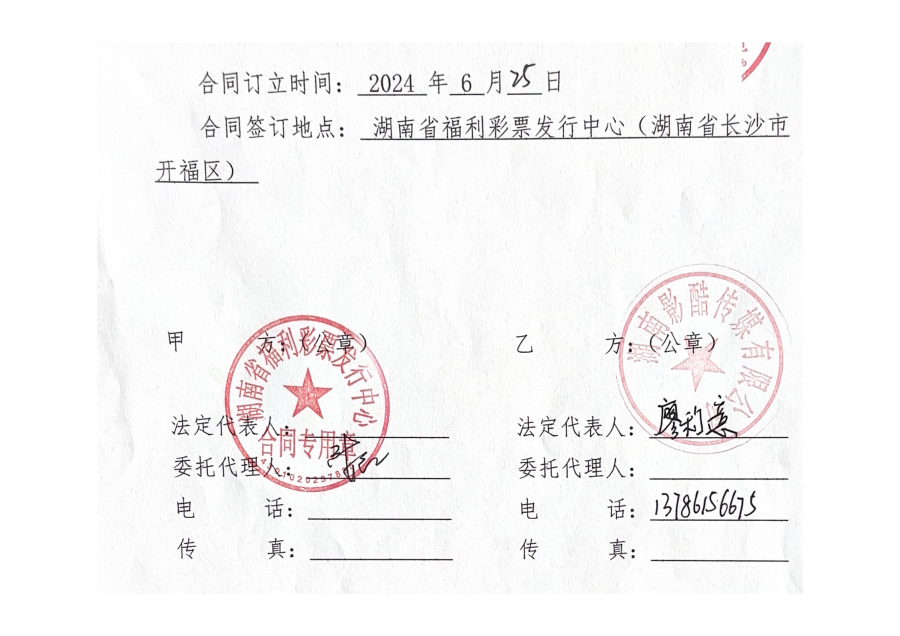 合同订立时间: 2024 年 6 月 25 日
合同签订地点: 湖南省福利彩票发行中心(湖南省长沙市
开福区)
甲 方:(公章)
湖南省福利彩票发行中心
合同专用章
法定代表人:
委托代理人:
电 话:
传 真:
乙 方:(公章)
湖南影酷传媒有限公司
法定代表人: 廖利意
委托代理人:
电 话: 13786156675
传 真: